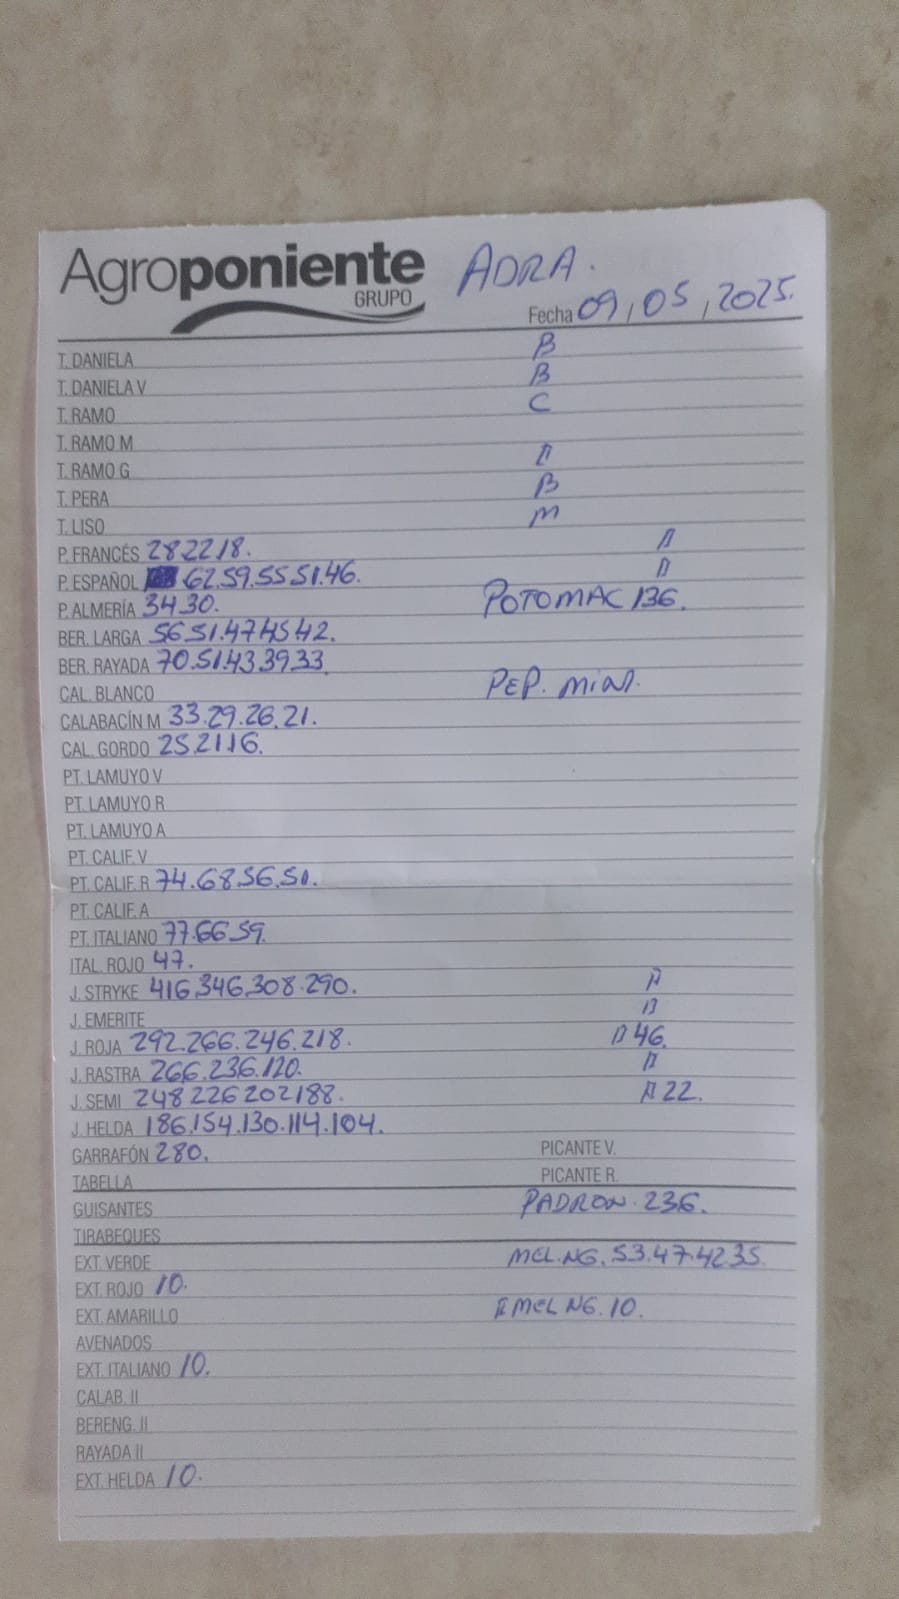 Agroponiente ADRA.
GRUPO
Fecha 09/05/2025.
T. DANELA B
T. DANIELA V B
T. RAMO C
T. RAMO M
T. RAMO G
T. PERA B
T. LISO M
P. FRANCÉS 28.22.18.
P. ESPAÑOL 62.59.55.51.46.
P. ALMERÍA 34.30. POTOMAC 136.
BER. LARGA 56.51.47.45.42.
BER. RAYADA 70.51.43.39.33
CAL. BLANCO PEP. MINI.
CALABACÍN M 33.29.26.21.
CAL. GORDO 25.21.16.
PT. LAMUYO V
PT. LAMUYO R
PT. LAMUYO A
PT. CALIF. V
PT. CALIF. R 74.68.56.51.
PT. CALIF. A
PT. ITALIANO 77.66.59.
ITAL. ROJO 47.
J. STRYKE 416.346.308.290.
J. EMERITE
J. ROJA 292.266.246.218. 46.
J. RASTRA 266.236.120.
J. SEMI 248 226 202 188. 22.
J. HELDA 186.154.130.114.104.
GARRAFÓN 280. PICANTE V.
TABELLA PICANTE R.
GUISANTES PADRON. 236.
TIRABEQUES
EXT. VERDE MEL.NG. 53.47.42.35.
EXT. ROJO 10.
EXT. AMARILLO MEL NG. 10.
AVENADOS
EXT. ITALIANO 10.
CALAB. II
BERENG. II
RAYADA II
EXT. HELDA 10.